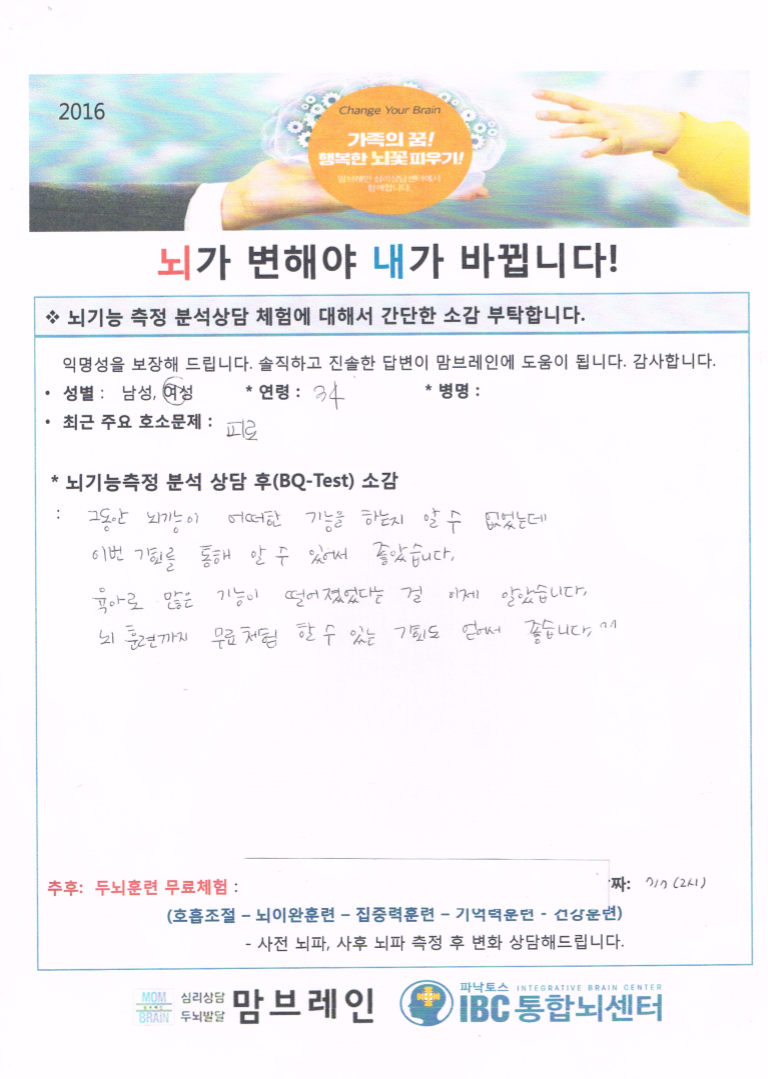 2016
Change Your Brain
가족의 꿈!
행복한 뇌꽃 피우기!
맘브레인 심리상담센터에서
함께합니다.
뇌가 변해야 내가 바뀝니다!
❖ 뇌기능 측정 분석상담 체험에 대해서 간단한 소감 부탁합니다.
익명성을 보장해 드립니다. 솔직하고 진솔한 답변이 맘브레인에 도움이 됩니다. 감사합니다.
• 성별 : 남성, 여성 * 연령 : 34 * 병명 :
• 최근 주요 호소문제 : 피로
* 뇌기능측정 분석 상담 후(BQ-Test) 소감
: 그동안 뇌기능이 어떠한 기능을 하는지 알 수 없었는데
이번 기회를 통해 알 수 있어서 좋았습니다.
육아로 많은 기능이 떨어졌었다는 걸 이제 알았습니다.
뇌 훈련까지 무료체험 할 수 있는 기회도 얻어서 좋습니다. ^^
추후: 두뇌훈련 무료체험 : 짜: 7/7 (2시)
(호흡조절 – 뇌이완훈련 – 집중력훈련 – 기억력훈련 - 건강훈련)
- 사전 뇌파, 사후 뇌파 측정 후 변화 상담해드립니다.
MOM BRAIN 심리상담 두뇌발달 맘브레인 파낙토스 INTEGRATIVE BRAIN CENTER IBC 통합뇌센터